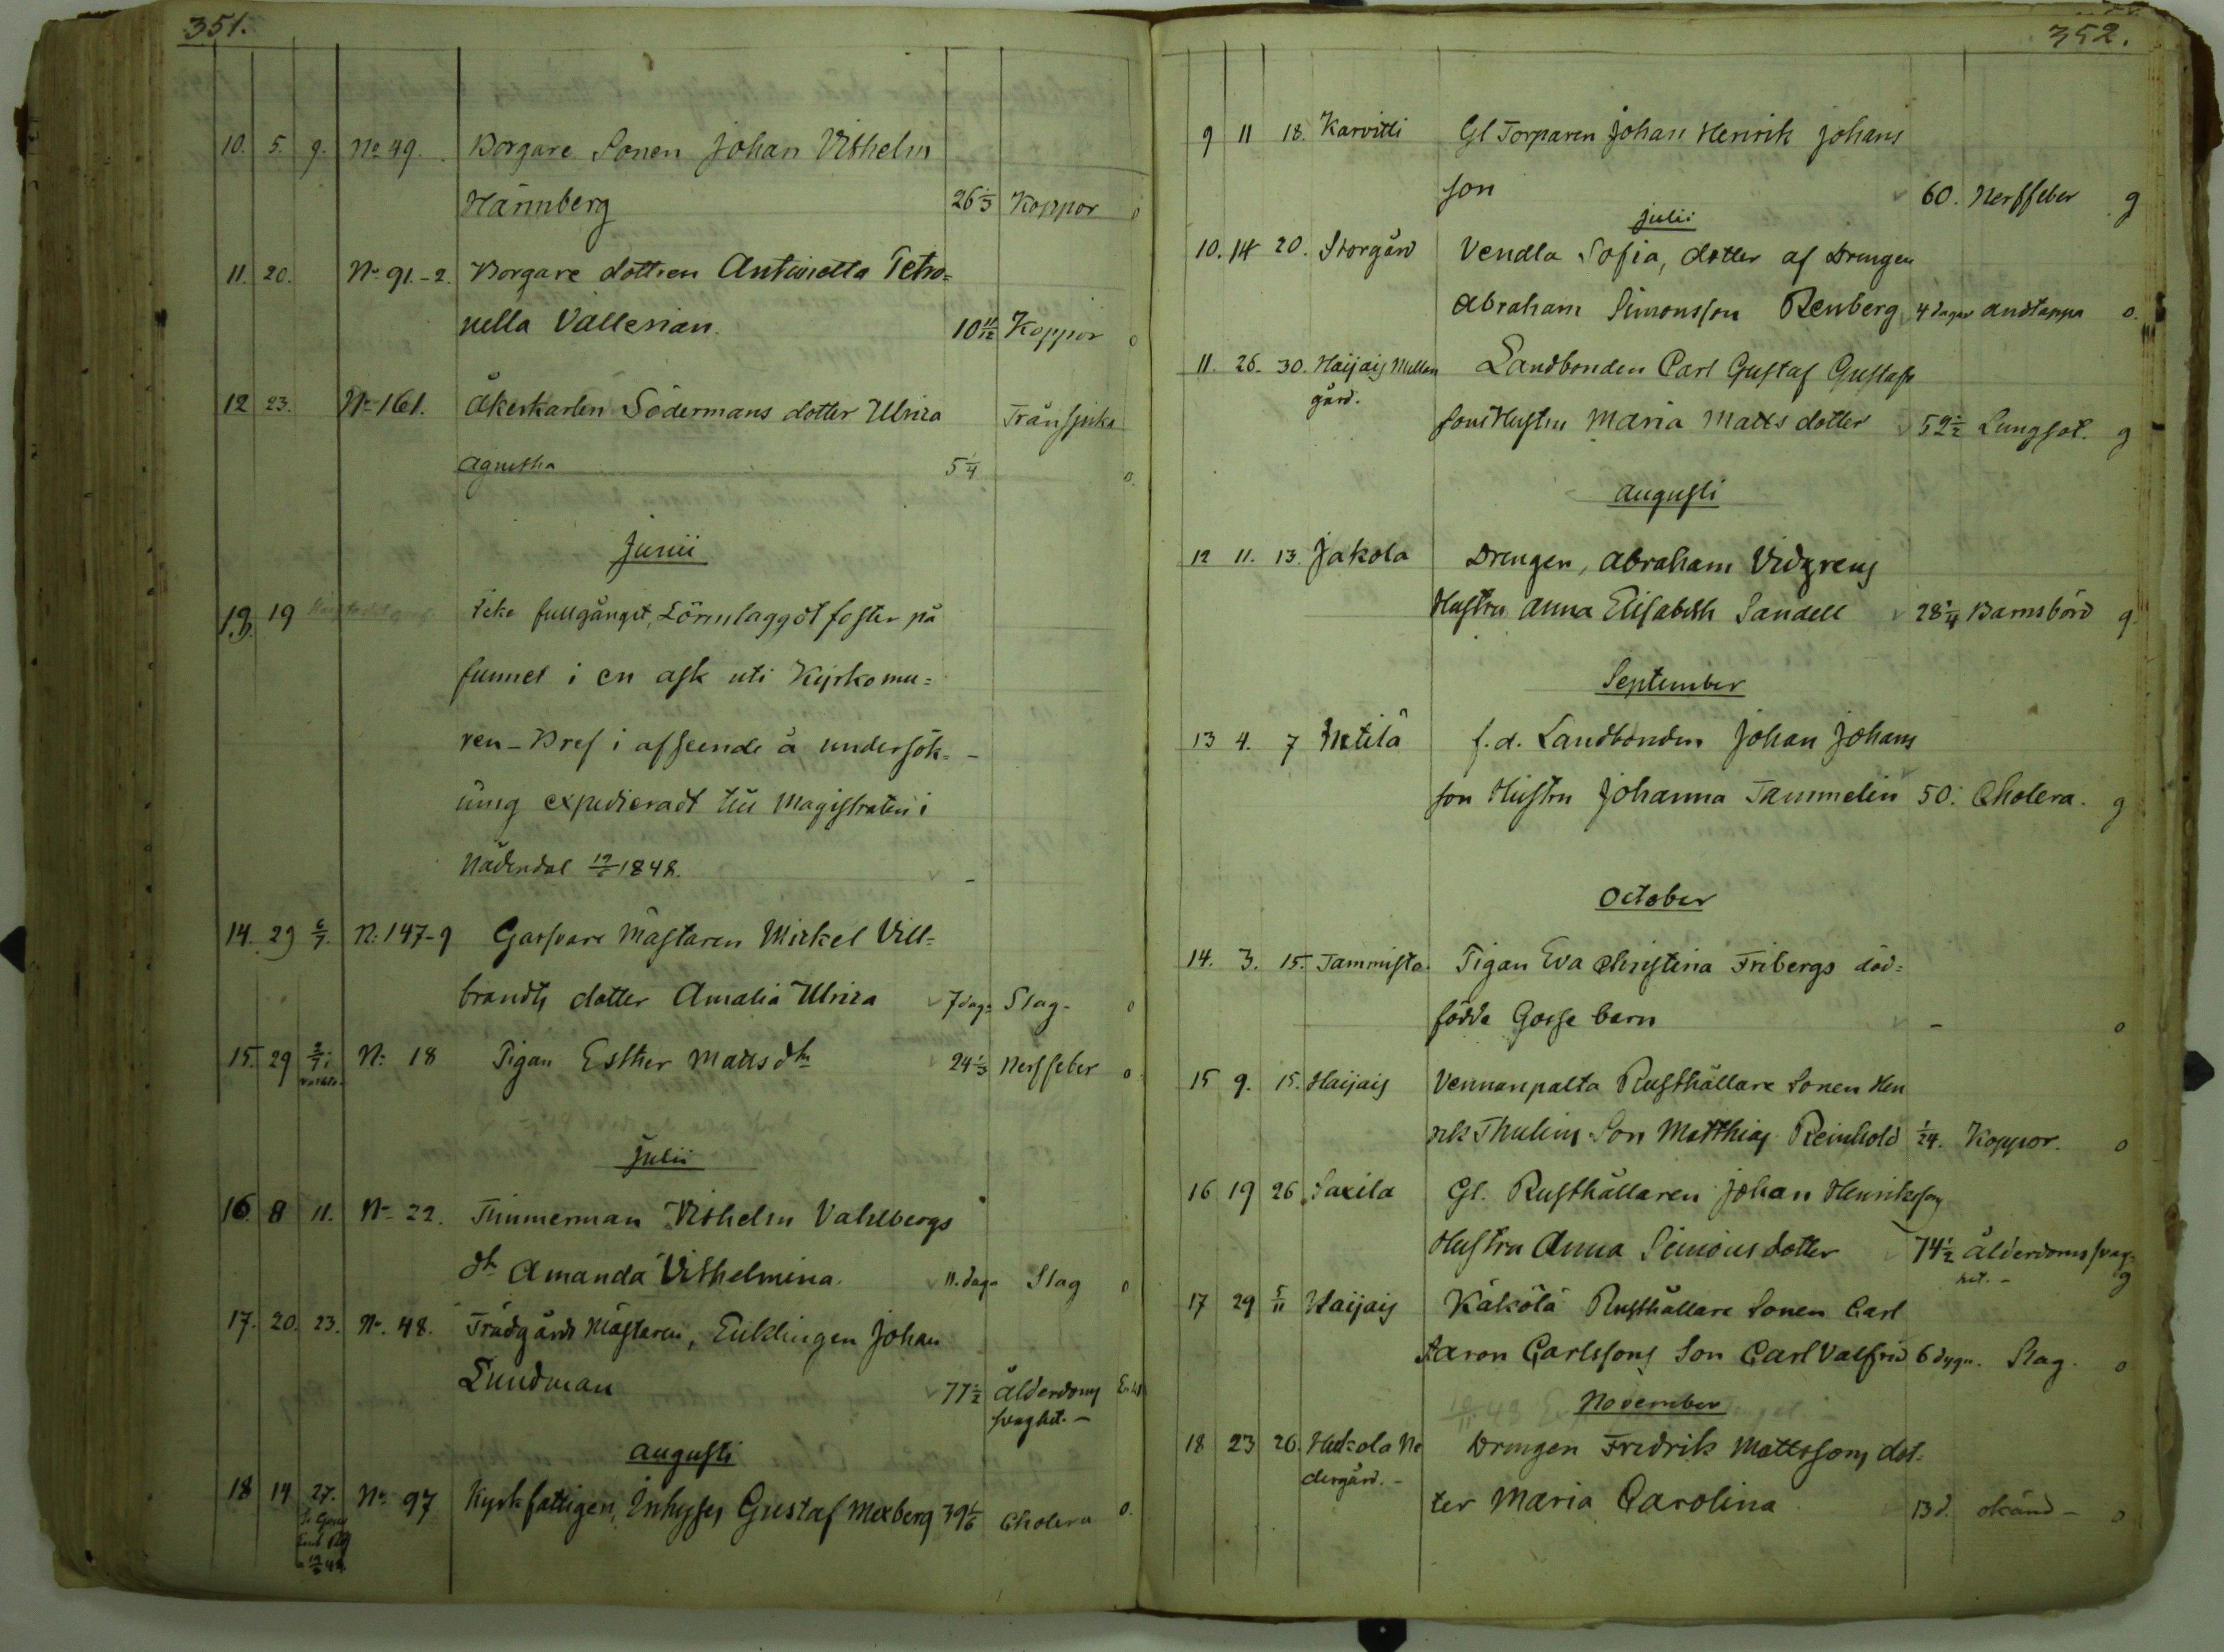 351.
10. 5. 9. No 49. Borgare Sonen Johan Vilhelm
Härmberg 26 1/3 Koppor o
11. 20. No 91.-2. Borgare dottren Antoinetta Petro=
nella Vallenian. 10 11/12 Koppor o
12 23. No 161. Åkerkarlen Södermans dotter Ulrica Trånsjuka
Agnetha 5 1/4 o.
Junii
13. 19 Icke fullgånget, Lönnlaggdt foster på
funnet i en ask uti Kyrkomu=
ren - Bref i afseende å undersök= -
ning expedieradt till Magistraten i
Nådendal 19/6 1848. -
14. 29 6/7. N: 147-9 Garfvare Mästaren Mickel Vill=
brandts dotter Amalia Ulrica 7 dag= Slag- o
15. 29 2/7 i N: 18 Pigan Esther Matts dtr 24 1/3 Nerffeber o
Julii
16. 8 11. No 22. Timmerman Vilhelm Vahlbergs
dtr Amanda Vilhelmina. 11. daga Slag o
17. 20. 23. No. 48. Trädgårds Mästaren, Enklingen Johan
Lundman 77 1/2 ålderdoms Enkl
svaghet. -
Augusti
18 14 27. No 97 Kyrkfattigen, Inhyses Gustaf Mexberg 39 1/6 Cholera o.
352.
9 11 18. Karvitti Gl Torparen Johan Henrik Johans
son 60. Nerffeber g
Julii
10. 14 20. Storgård Vendla Sofia, dotter af Drengen
Abraham Simonsson Renberg 4 dagar andtäppa o.
11. 26. 30. Haijais Mellan Landbonden Carl Gustaf Gustafs
gård.
sons Hustru Maria Matts dotter 59 1/2 Lungsot. g
Augusti
12 11. 13. Jakola Drengen, Abraham Vidgrens
Hustru Anna Elisabeth Sandell 28 1/4 Barnsbörd g
September
13 4. 7 Intilä f.d. Landbonden Johan Johans
son Hustru Johanna Tammelin 50. Cholera. g
October
14. 3. 15. Tammisto. Pigan Eva Christina Fribergs död=
födde Gosse barn - o
15 9. 15. Haijais Vennanpalta Rusthållare Sonen Hen
rik Thulins Son Matthias Reinhold 1/24. Koppor. o
16 19 26. Saxila Gl. Rusthållaren Johan Henrikssons
Hustru Anna Simons dotter 74 1/2 ålderdomssvag=
het. - g
17 29 5/11 Haijais Käkölä Rusthållare Sonen Carl
Aaron Carlssons Son Carl Valfrid 6 dygn. Slag. o
November
18 23 26. Hukola Ne Drengen Fredrik Mattssons dot=
dergård. -
ter Maria Carolina 13 d. okänd - o